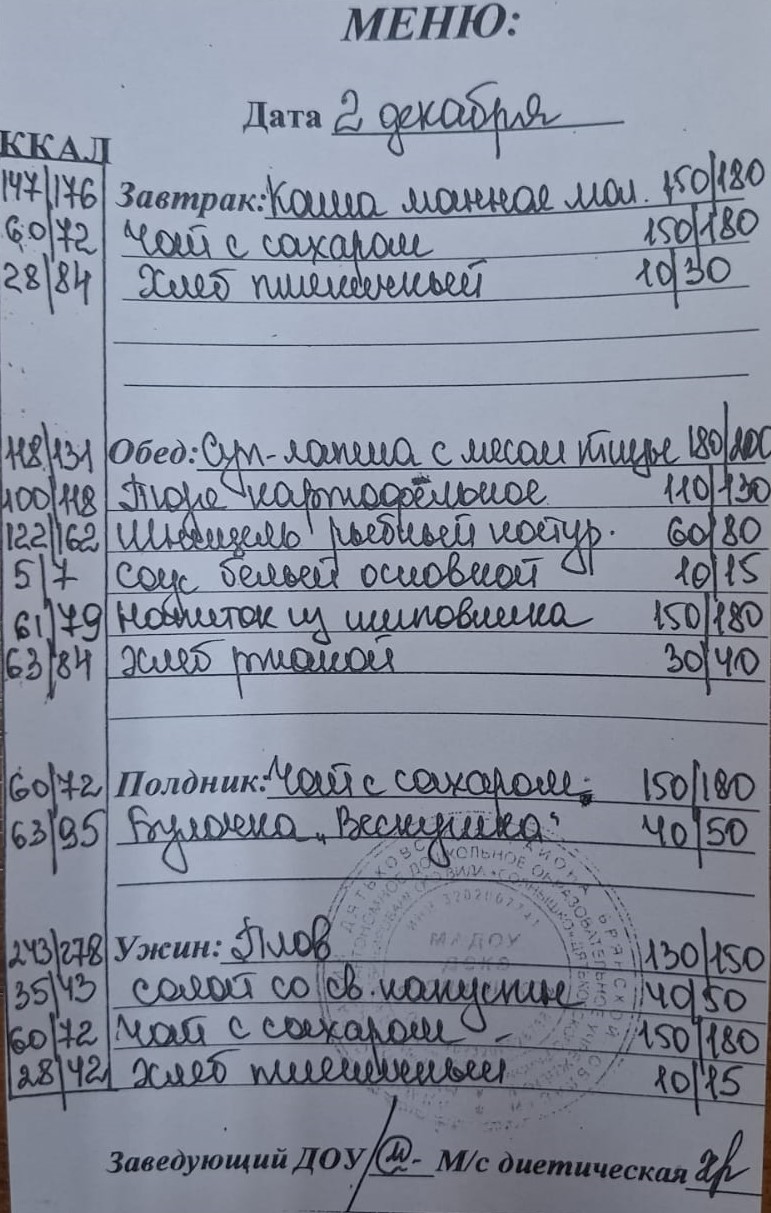 МЕНЮ:
Дата 2 декабря
ККАЛ
147/176 Завтрак: Каша манная мол. 150/180
60/72 Чай с сахаром 150/180
28/84 Хлеб пшеничный 10/30
118/131 Обед: Суп-лапша с мясом птицы 180/200
100/118 Пюре картофельное 110/130
122/162 Шницель рыбный натур. 60/80
5/7 Соус белый основной 10/15
61/79 Напиток из шиповника 150/180
63/84 Хлеб ржаной 30/40
60/72 Полдник: Чай с сахаром 150/180
63/95 Булочка „Веснушка" 40/50
243/278 Ужин: Плов 130/150
35/43 салат со св. капусты 40/50
60/72 Чай с сахаром - 150/180
28/42 Хлеб пшеничный 10/15
МАДОУ
Заведующий ДОУ М/с диетическая